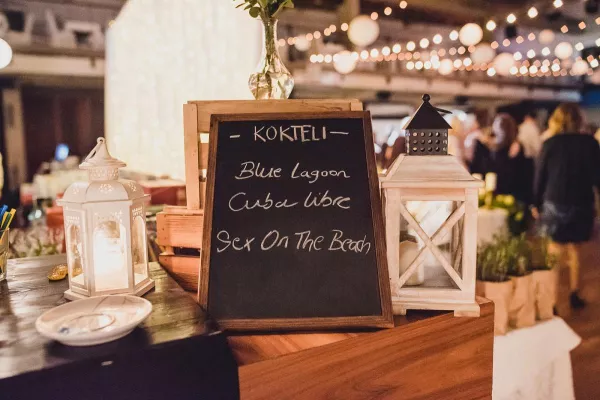 - KOKTELI -
Blue Lagoon
Cuba Libre
Sex On The Beach